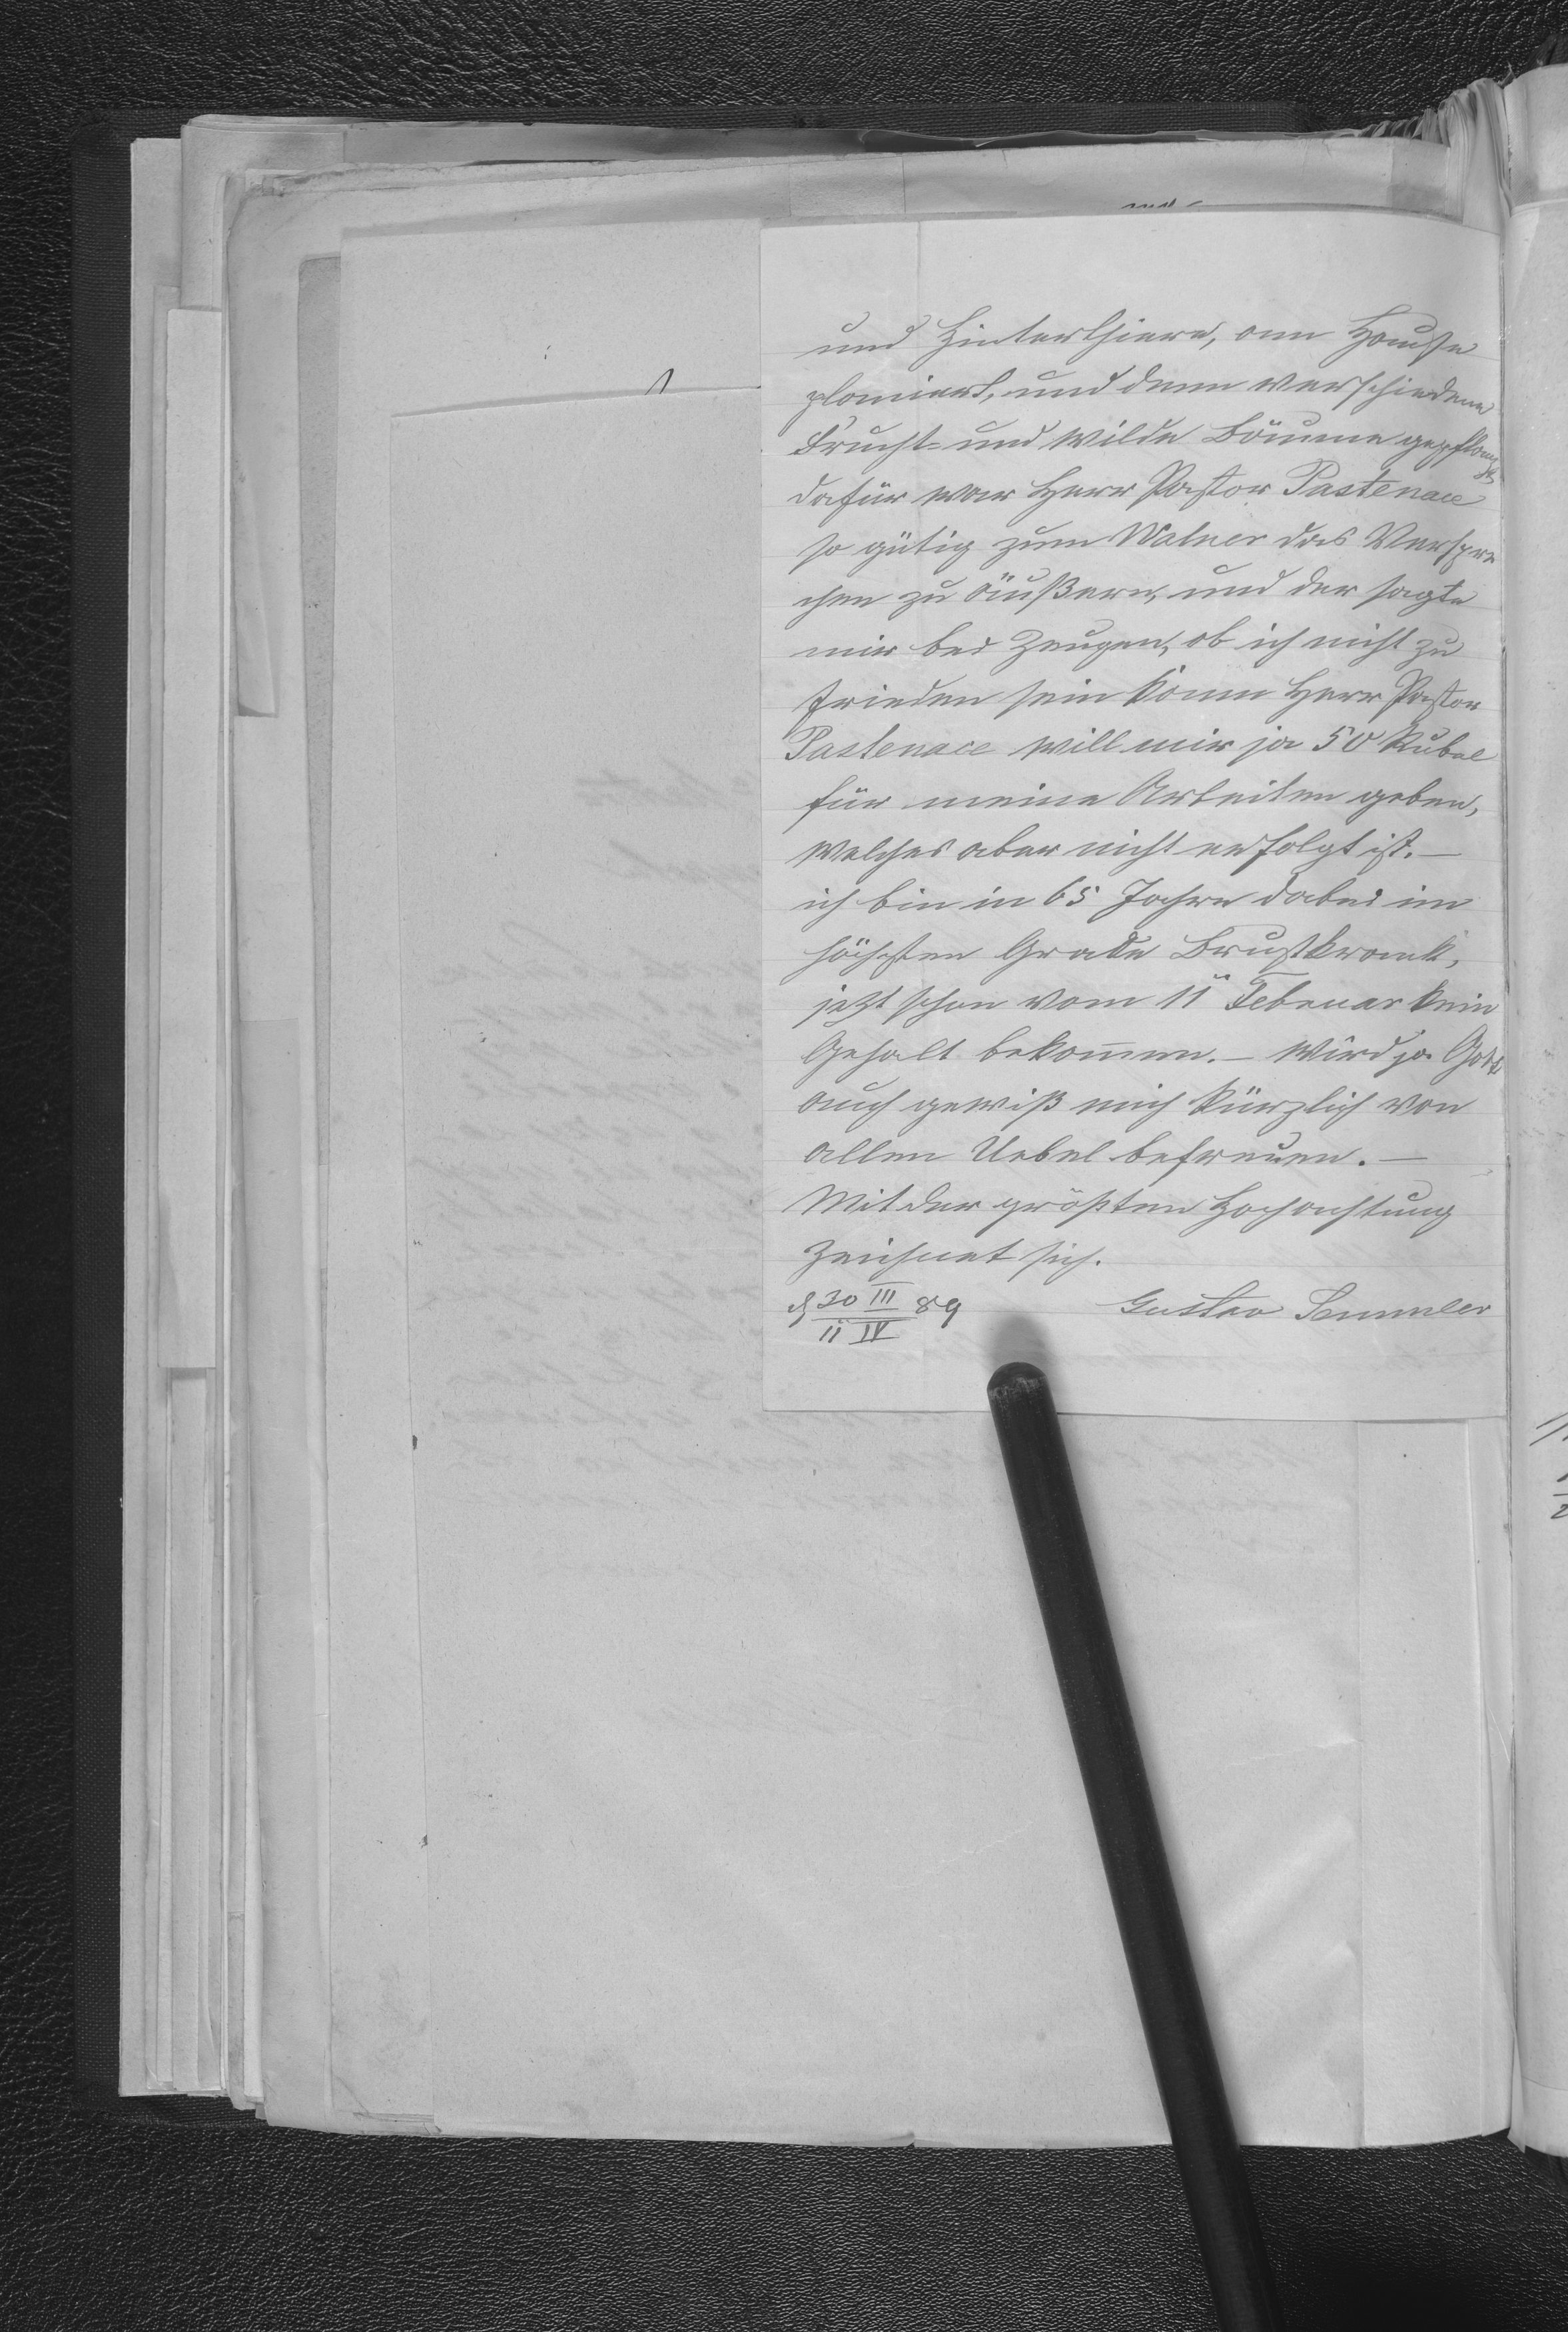 und Hinterthiere, am Hause
planiert, und dann verschiedene
Frucht- und wilde Bäume gepflanzt
dafür war Herr Pastor Pastenace
so gütig zum Walner das Verspre
chen zu äußern, und der sagte
mir bei Zeugen, ob ich nicht zu
frieden sein kann Herr Pastor
Pastenace will mir ja 50 Rubel
für meine Arbeiten geben,
welches aber nicht erfolgt ist. —
ich bin in 65 Jahre dabei im
höchsten Grade Brustkrank,
jezt schon vom 11 Februar kein
Gehalt bekommen. — wird ja Gott
auch gewiß mich kürzlich von
allen Uebel befreuen. —
Mit der größten Hochachtung
zeichnet sich.
d 30 III 89 Gustav Semmler
11 IV